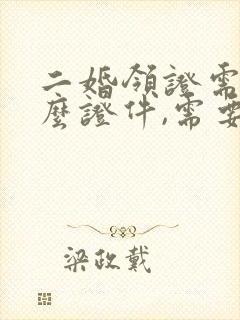 二婚領證需
麼證件,需要
梁政戴